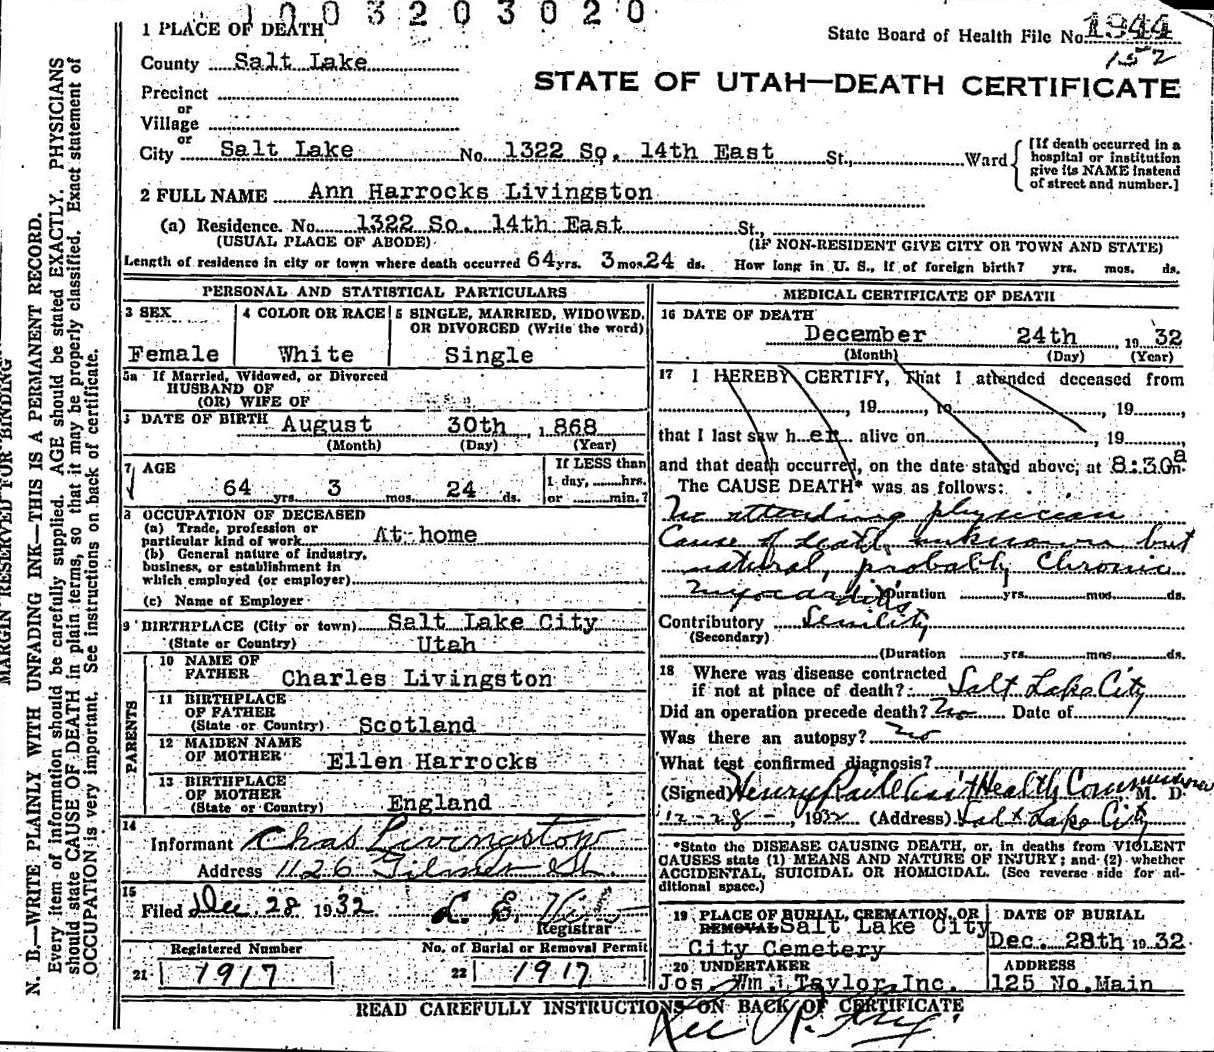 1003203020
1 PLACE OF DEATH
State Board of Health File No. 1944
152
County Salt Lake
STATE OF UTAH—DEATH CERTIFICATE
Precinct
or
Village
or
City Salt Lake No. 1322 So. 14th East St., Ward
[If death occurred in a
hospital or institution
give its NAME instead
of street and number.]
2 FULL NAME Ann Harrocks Livingston
(a) Residence. No. 1322 So. 14th East St.,
(USUAL PLACE OF ABODE) (IF NON-RESIDENT GIVE CITY OR TOWN AND STATE)
Length of residence in city or town where death occurred 64 yrs. 3 mos. 24 ds. How long in U. S., if of foreign birth? yrs. mos. ds.
PERSONAL AND STATISTICAL PARTICULARS
3 SEX
Female
4 COLOR OR RACE
White
5 SINGLE, MARRIED, WIDOWED,
OR DIVORCED (Write the word)
Single
5a If Married, Widowed, or Divorced
HUSBAND OF
(OR) WIFE OF
6 DATE OF BIRTH August 30th, 1868
(Month) (Day) (Year)
7 AGE
64 yrs. 3 mos. 24 ds.
If LESS than
1 day, hrs.
or min.?
8 OCCUPATION OF DECEASED
(a) Trade, profession or
particular kind of work At home
(b) General nature of industry,
business, or establishment in
which employed (or employer)
(c) Name of Employer
9 BIRTHPLACE (City or town) Salt Lake City
(State or Country) Utah
PARENTS
10 NAME OF
FATHER Charles Livingston
11 BIRTHPLACE
OF FATHER
(State or Country) Scotland
12 MAIDEN NAME
OF MOTHER Ellen Harrocks
13 BIRTHPLACE
OF MOTHER
(State or Country) England
14
Informant Chas Livingston
Address 1126 Gilmer St.
15
Filed Dec. 28 1932 L. E.
Registrar
Registered Number
21 1917
No. of Burial or Removal Permit
22 1917
MEDICAL CERTIFICATE OF DEATH
16 DATE OF DEATH
December 24th, 1932
(Month) (Day) (Year)
17 I HEREBY CERTIFY, That I attended deceased from
, 19, to , 19,
that I last saw her alive on , 19,
and that death occurred, on the date stated above, at 8:30 a m.
The CAUSE DEATH* was as follows:
No attending physician
Cause of death unknown but
natural, probably Chronic
Myocarditis
(Duration yrs. mos. ds.
Contributory Senility
(Secondary)
(Duration yrs. mos. ds.
18 Where was disease contracted
if not at place of death? Salt Lake City
Did an operation precede death? No Date of
Was there an autopsy? No
What test confirmed diagnosis?
(Signed) Henry Raile Ass't Health Commissioner M. D.
12-28-, 1932 (Address) Salt Lake City
*State the DISEASE CAUSING DEATH, or, in deaths from VIOLENT
CAUSES state (1) MEANS AND NATURE OF INJURY; and (2) whether
ACCIDENTAL, SUICIDAL OR HOMICIDAL. (See reverse side for ad-
ditional space.)
19 PLACE OF BURIAL, CREMATION, OR
REMOVAL Salt Lake City
City Cemetery
DATE OF BURIAL
Dec. 28th 1932
20 UNDERTAKER
Jos. Wm. Taylor, Inc.
ADDRESS
125 No. Main
READ CAREFULLY INSTRUCTIONS ON BACK OF CERTIFICATE
MARGIN RESERVED FOR BINDING
N. B.—WRITE PLAINLY WITH UNFADING INK—THIS IS A PERMANENT RECORD.
Every item of information should be carefully supplied. AGE should be stated EXACTLY. PHYSICIANS
should state CAUSE OF DEATH in plain terms, so that it may be properly classified. Exact statement of
OCCUPATION is very important. See instructions on back of certificate.